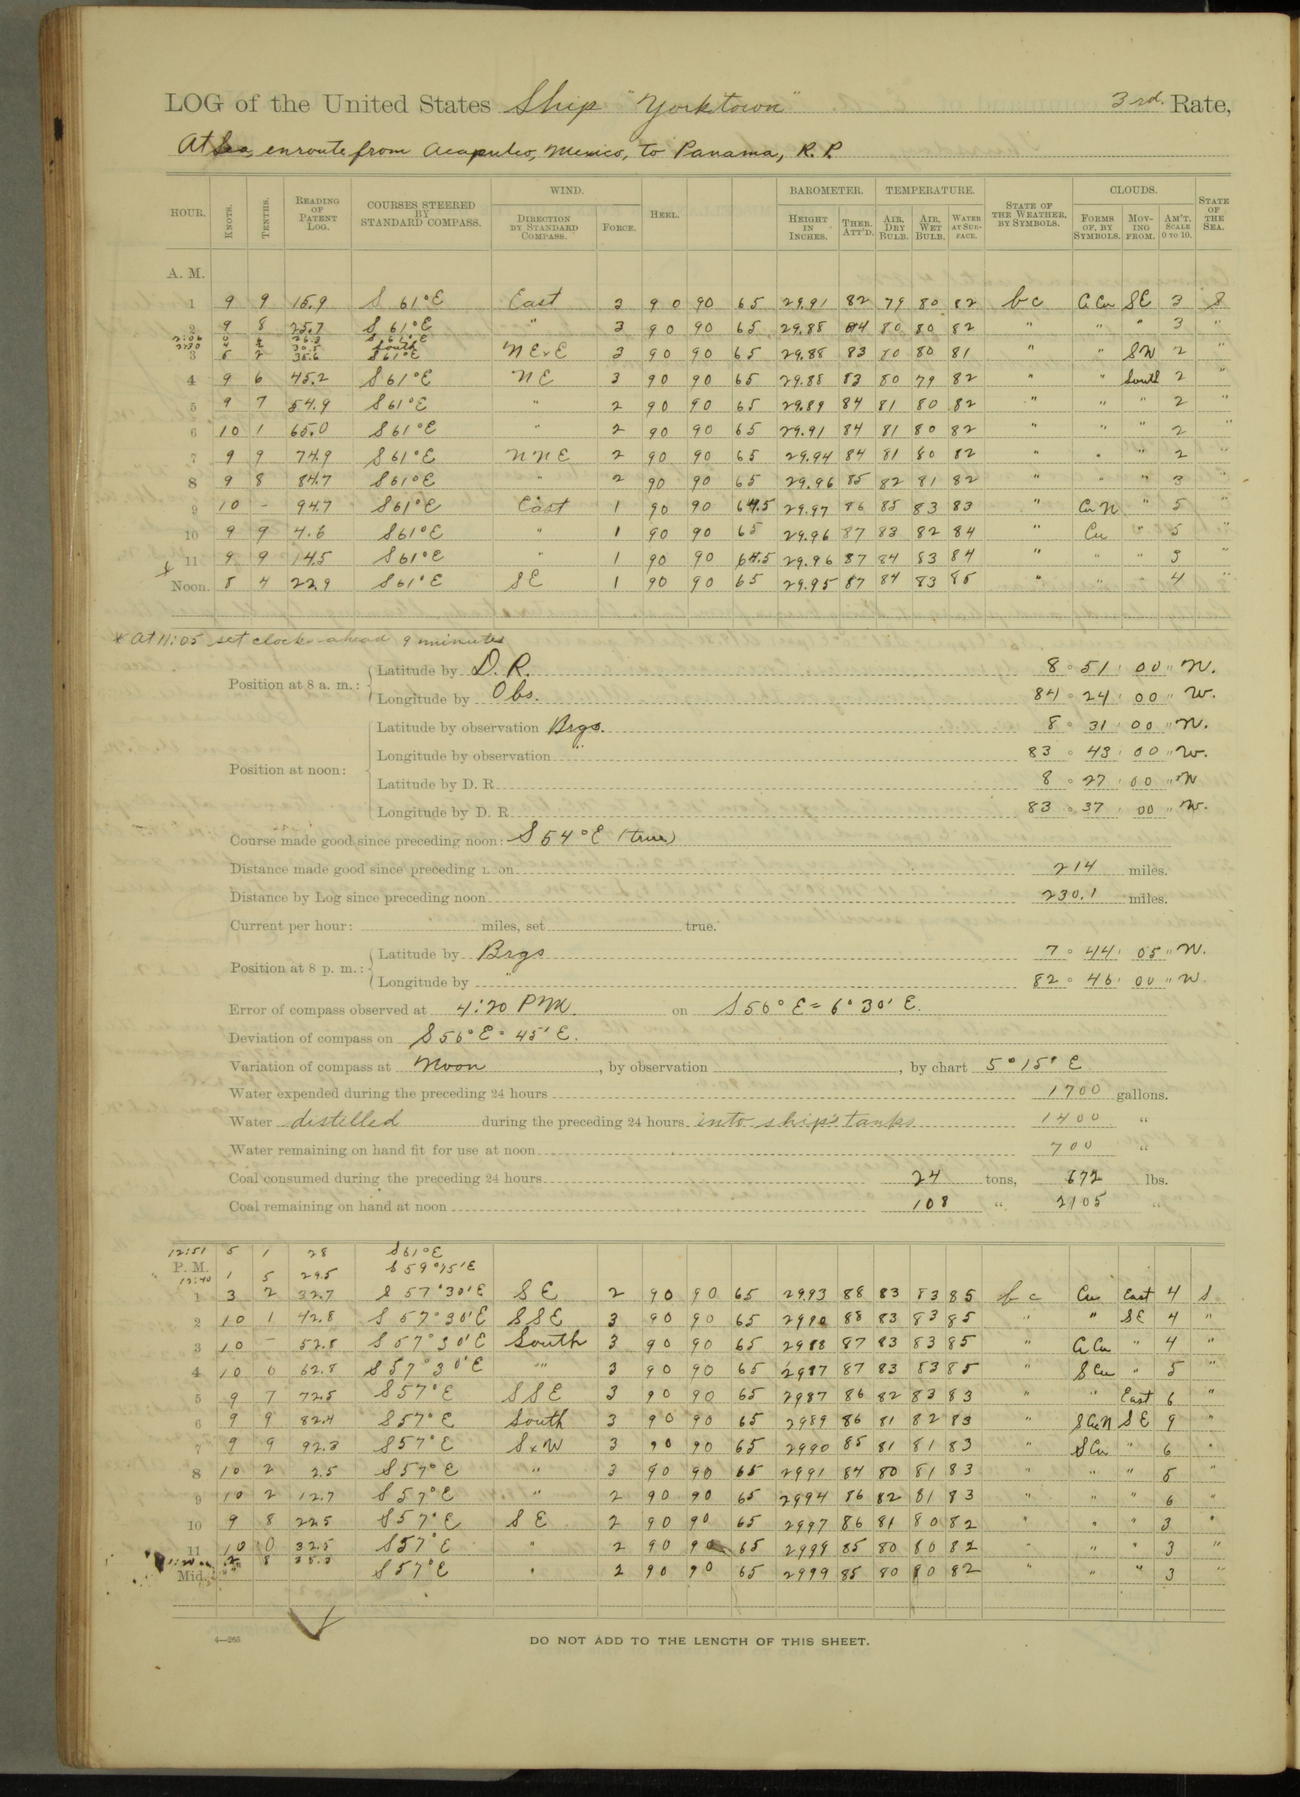 LOG of the United States Ship "Yorktown" 3rd. Rate,
At Sea, enroute from Acapulco, Mexico, to Panama, R. P.
HOUR. KNOTS. TENTHS. READING OF PATENT LOG. COURSES STEERED BY STANDARD COMPASS. WIND. DIRECTION BY STANDARD COMPASS. FORCE. HEEL. BAROMETER. HEIGHT IN INCHES. THER. ATT'D. TEMPERATURE. AIR, DRY BULB. AIR, WET BULB. WATER AT SURFACE. STATE OF THE WEATHER, BY SYMBOLS. CLOUDS. FORMS OF, BY SYMBOLS. MOVING FROM. AM'T. SCALE 0 TO 10. STATE OF THE SEA.
A. M.
1 9 9 15.9 S 61°E East 3 90 90 65 29.91 82 79 80 82 bc Ci Cu SE 3 S
2 9 8 25.7 S 61°E " 3 90 90 65 29.88 84 80 80 82 " " " 3 "
South
3 8 2 35.6 S 61°E NExE 3 90 90 65 29.88 83 80 80 81 " " SW 2 "
4 9 6 45.2 S 61°E NE 3 90 90 65 29.88 83 80 79 82 " " South 2 "
5 9 7 54.9 S 61°E " 2 90 90 65 29.89 84 81 80 82 " " " 2 "
6 10 1 65.0 S 61°E " 2 90 90 65 29.91 84 81 80 82 " " " 2 "
7 9 9 74.9 S 61°E NNE 2 90 90 65 29.94 84 81 80 82 " " " 2 "
8 9 8 84.7 S 61°E " 2 90 90 65 29.96 85 82 81 82 " " " 3 "
9 10 - 94.7 S 61°E East 1 90 90 64.5 29.97 86 85 83 83 " Cu N " 5 "
10 9 9 4.6 S 61°E " 1 90 90 65 29.96 87 83 82 84 " Cu " 5 "
11 9 9 14.5 S 61°E " 1 90 90 64.5 29.96 87 84 83 84 " " " 3 "
Noon. 8 4 22.9 S 61°E SE 1 90 90 65 29.95 87 84 83 85 " " " 4 "
* At 11:05 set clocks ahead 9 minutes
Position at 8 a. m.: Latitude by D. R. 8° 51' 00" N.
Longitude by Obs. 84° 24' 00" W.
Position at noon: Latitude by observation Brgs. 8° 31' 00" N.
Longitude by observation " 83° 43' 00" W.
Latitude by D. R. 8° 27' 00" N
Longitude by D. R. 83° 37' 00" W.
Course made good since preceding noon: S 54°E (true)
Distance made good since preceding noon 214 miles.
Distance by Log since preceding noon 230.1 miles.
Current per hour: miles, set true.
Position at 8 p. m.: Latitude by Brgs 7° 44' 05" N.
Longitude by " 82° 46' 00" W
Error of compass observed at 4:20 PM. on S 56° E = 6° 30' E.
Deviation of compass on S 56° E = 45' E.
Variation of compass at Noon, by observation , by chart 5° 15' E
Water expended during the preceding 24 hours 1700 gallons.
Water distilled during the preceding 24 hours into ship's tanks 1400 "
Water remaining on hand fit for use at noon 700 "
Coal consumed during the preceding 24 hours 24 tons, 672 lbs.
Coal remaining on hand at noon 108 " 2105 "
12:51 5 1 28 S 61°E
P. M.
12:40 1 5 29.5 S 59°15'E
1 3 2 32.7 S 57°30'E SE 2 90 90 65 2993 88 83 83 85 bc Cu East 4 S
2 10 1 42.8 S 57°30'E SSE 3 90 90 65 2990 88 83 83 85 " " SE 4 "
3 10 - 52.8 S 57°30'E South 3 90 90 65 2988 87 83 83 85 " Ci Cu " 4 "
4 10 0 62.8 S 57°30'E " 3 90 90 65 2987 87 83 83 85 " S Cu " 5 "
5 9 7 72.5 S 57°E SSE 3 90 90 65 2987 86 82 83 83 " " East 6 "
6 9 9 82.4 S 57°E South 3 90 90 65 2989 86 81 82 83 " S Cu N SE 9 "
7 9 9 92.3 S 57°E SxW 3 90 90 65 2990 85 81 81 83 " S Cu " 6 "
8 10 2 2.5 S 57°E " 3 90 90 65 2991 84 80 81 83 " " " 5 "
9 10 2 12.7 S 57°E " 2 90 90 65 2994 86 82 81 83 " " " 6 "
10 9 8 22.5 S 57°E SE 2 90 90 65 2997 86 81 80 82 " " " 3 "
11 10 0 32.5 S 57°E " 2 90 90 65 2999 85 80 80 82 " " " 3 "
Mid. S 57°E " 2 90 90 65 2999 85 80 80 82 " " " 3 "
4—265
DO NOT ADD TO THE LENGTH OF THIS SHEET.